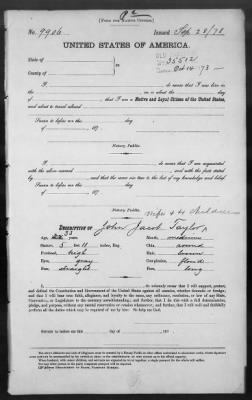 [FOR NATIVE CITIZEN.]
No. 9906 Issued Sep 28/78
UNITED STATES OF AMERICA.
State of
County of
35512
Oct 14 73
I, do swear that I was born in
on or about the
day of
that I am a Native and Loyal Citizen of the United States,
and about to travel abroad
Sworn to before me this day
of 187
Notary Public.
I, do swear that I am acquainted
with the above-named and with the facts stated
by and that the same are true to the best of my knowledge and belief.
Sworn to before me this day
of 187
Notary Public.
wife & 4 children
DESCRIPTION OF John Jacob Taylor
Age, 33 years Mouth, medium
Stature, 5 feet 11 inches, Eng. Chin, round
Forehead, high Hair, brown
Eyes, gray Complexion, florid
Nose, straight Face, long
I, do solemnly swear that I will support, protect
and defend the Constitution and Government of the United States against all enemies, whether domestic or foreign;
and that I will bear true faith, allegiance, and loyalty to the same, any ordinance, resolution, or law of any State,
Convention, or Legislature to the contrary notwithstanding; and further, that I do this with a full determination,
pledge, and purpose, without any mental reservation or evasion whatsoever; and further, that I will well and faithfully perform all
the duties which may be required of me by law. So help me God.
Sworn to before me this day of 187
Notary Public.